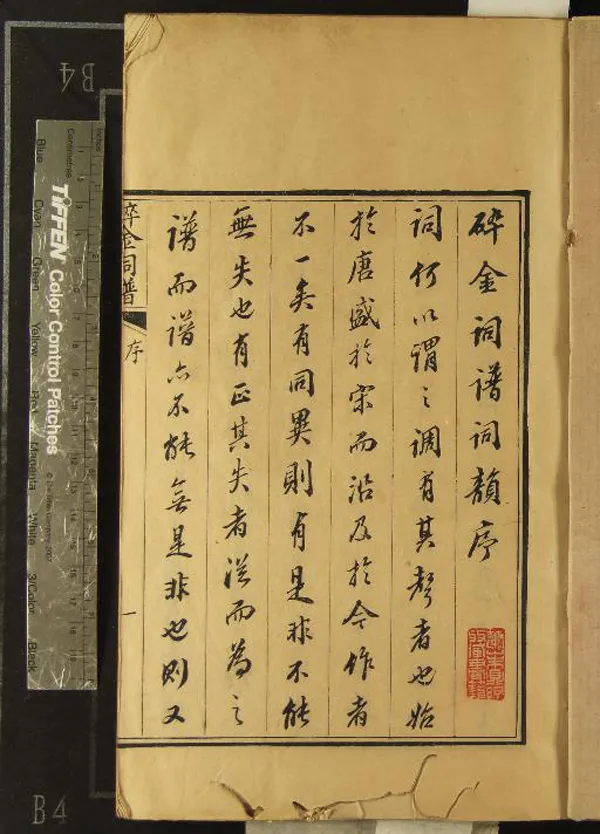 碎金词譜词韻序
词何以謂之调有其聲者也始
於唐盛於宋而沿及於今作者
不一矣有同異則有是非不能
無失也有正其失者從而為之
譜而譜亦不能無是非也则又
碎金词譜
序
一
B4
B4
Inches
Centimetres
TIFFEN Color Control Patches
Blue
Cyan
Green
Yellow
Red
Magenta
White
3/Color
Black